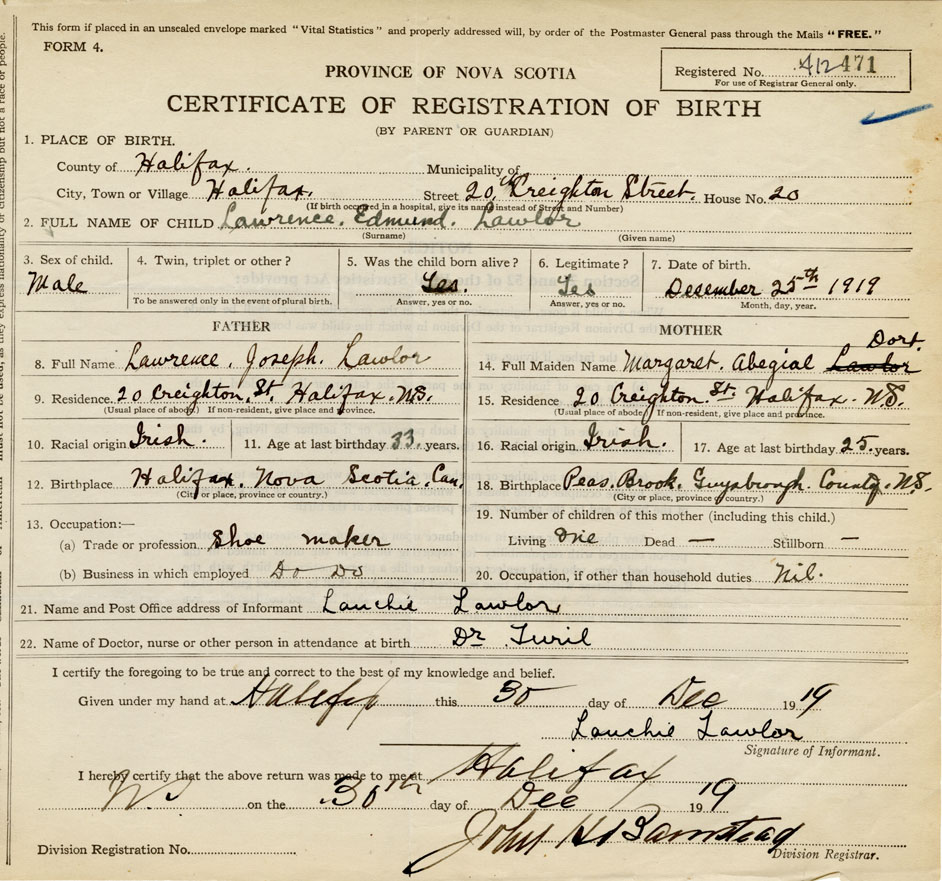 This form if placed in an unsealed envelope marked "Vital Statistics" and properly addressed will, by order of the Postmaster General pass through the Mails "FREE."
FORM 4.
Registered No. 412471
For use of Registrar General only.
PROVINCE OF NOVA SCOTIA
CERTIFICATE OF REGISTRATION OF BIRTH
(BY PARENT OR GUARDIAN)
1. PLACE OF BIRTH.
County of Halifax. Municipality of
City, Town or Village Halifax. Street 20, Creighton Street. House No. 20
(If birth occurred in a hospital, give its name instead of Street and Number)
2. FULL NAME OF CHILD Lawrence. Edmund. Lawlor
(Surname) (Given name)
3. Sex of child. 4. Twin, triplet or other? 5. Was the child born alive? 6. Legitimate? 7. Date of birth.
Male Yes. Yes December 25th 1919
To be answered only in the event of plural birth. Answer, yes or no. Answer, yes or no. Month, day, year.
FATHER
8. Full Name Lawrence. Joseph. Lawlor
9. Residence. 20 Creighton. St. Halifax. N.S.
(Usual place of abode) If non-resident, give place and province.
10. Racial origin Irish. 11. Age at last birthday 33. years.
12. Birthplace Halifax. Nova Scotia. Can.
(City or place, province or country.)
13. Occupation:—
(a) Trade or profession Shoe maker
(b) Business in which employed Do Do
MOTHER
Dort.
14. Full Maiden Name Margaret. Abegial Lawlor
15. Residence 20 Creighton St. Halifax. N.S.
(Usual place of abode) If non-resident, give place and province.
16. Racial origin Irish. 17. Age at last birthday 25. years.
18. Birthplace Peas. Brook. Guysbrough. County. N.S.
(City or place, province or country.)
19. Number of children of this mother (including this child.)
Living one Dead — Stillborn —
20. Occupation, if other than household duties Nil.
21. Name and Post Office address of Informant Lauchie Lawlor
22. Name of Doctor, nurse or other person in attendance at birth Dr Turil
I certify the foregoing to be true and correct to the best of my knowledge and belief.
Given under my hand at Halifax this 30 day of Dec 1919
Lauchie Lawlor
Signature of Informant.
I hereby certify that the above return was made to me at Halifax
N.S on the 30th day of Dec 1919
John H
Division Registration No. Division Registrar.